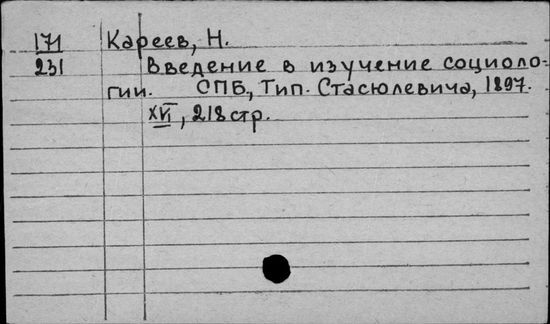 171 Кареев, Н.
231 Введение в изучение социоло-
гии. СПБ, Тип. Стасюлевича, 1897.
XVI, 218 стр.